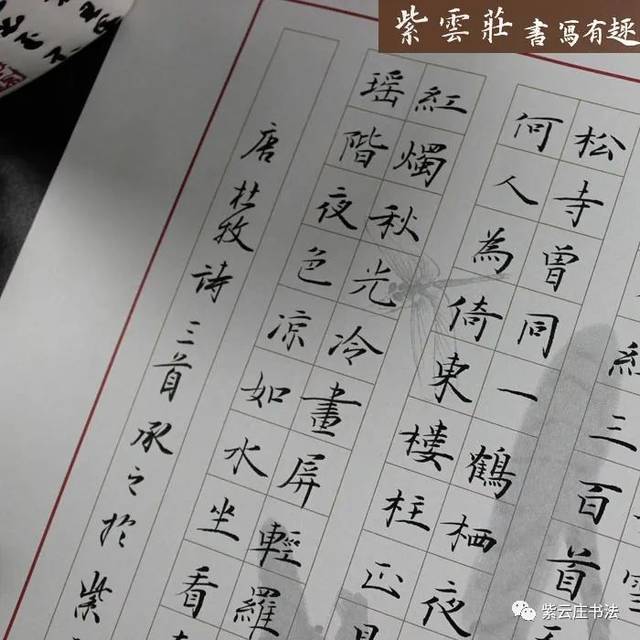 紫雲莊 書寫有趣
三百首
松寺曾同一鶴栖夜
何人為倚東樓柱正是
紅燭秋光冷畫屏輕羅
瑶階夜色凉如水坐看
唐杜牧詩三首承之於紫
紫云庄书法